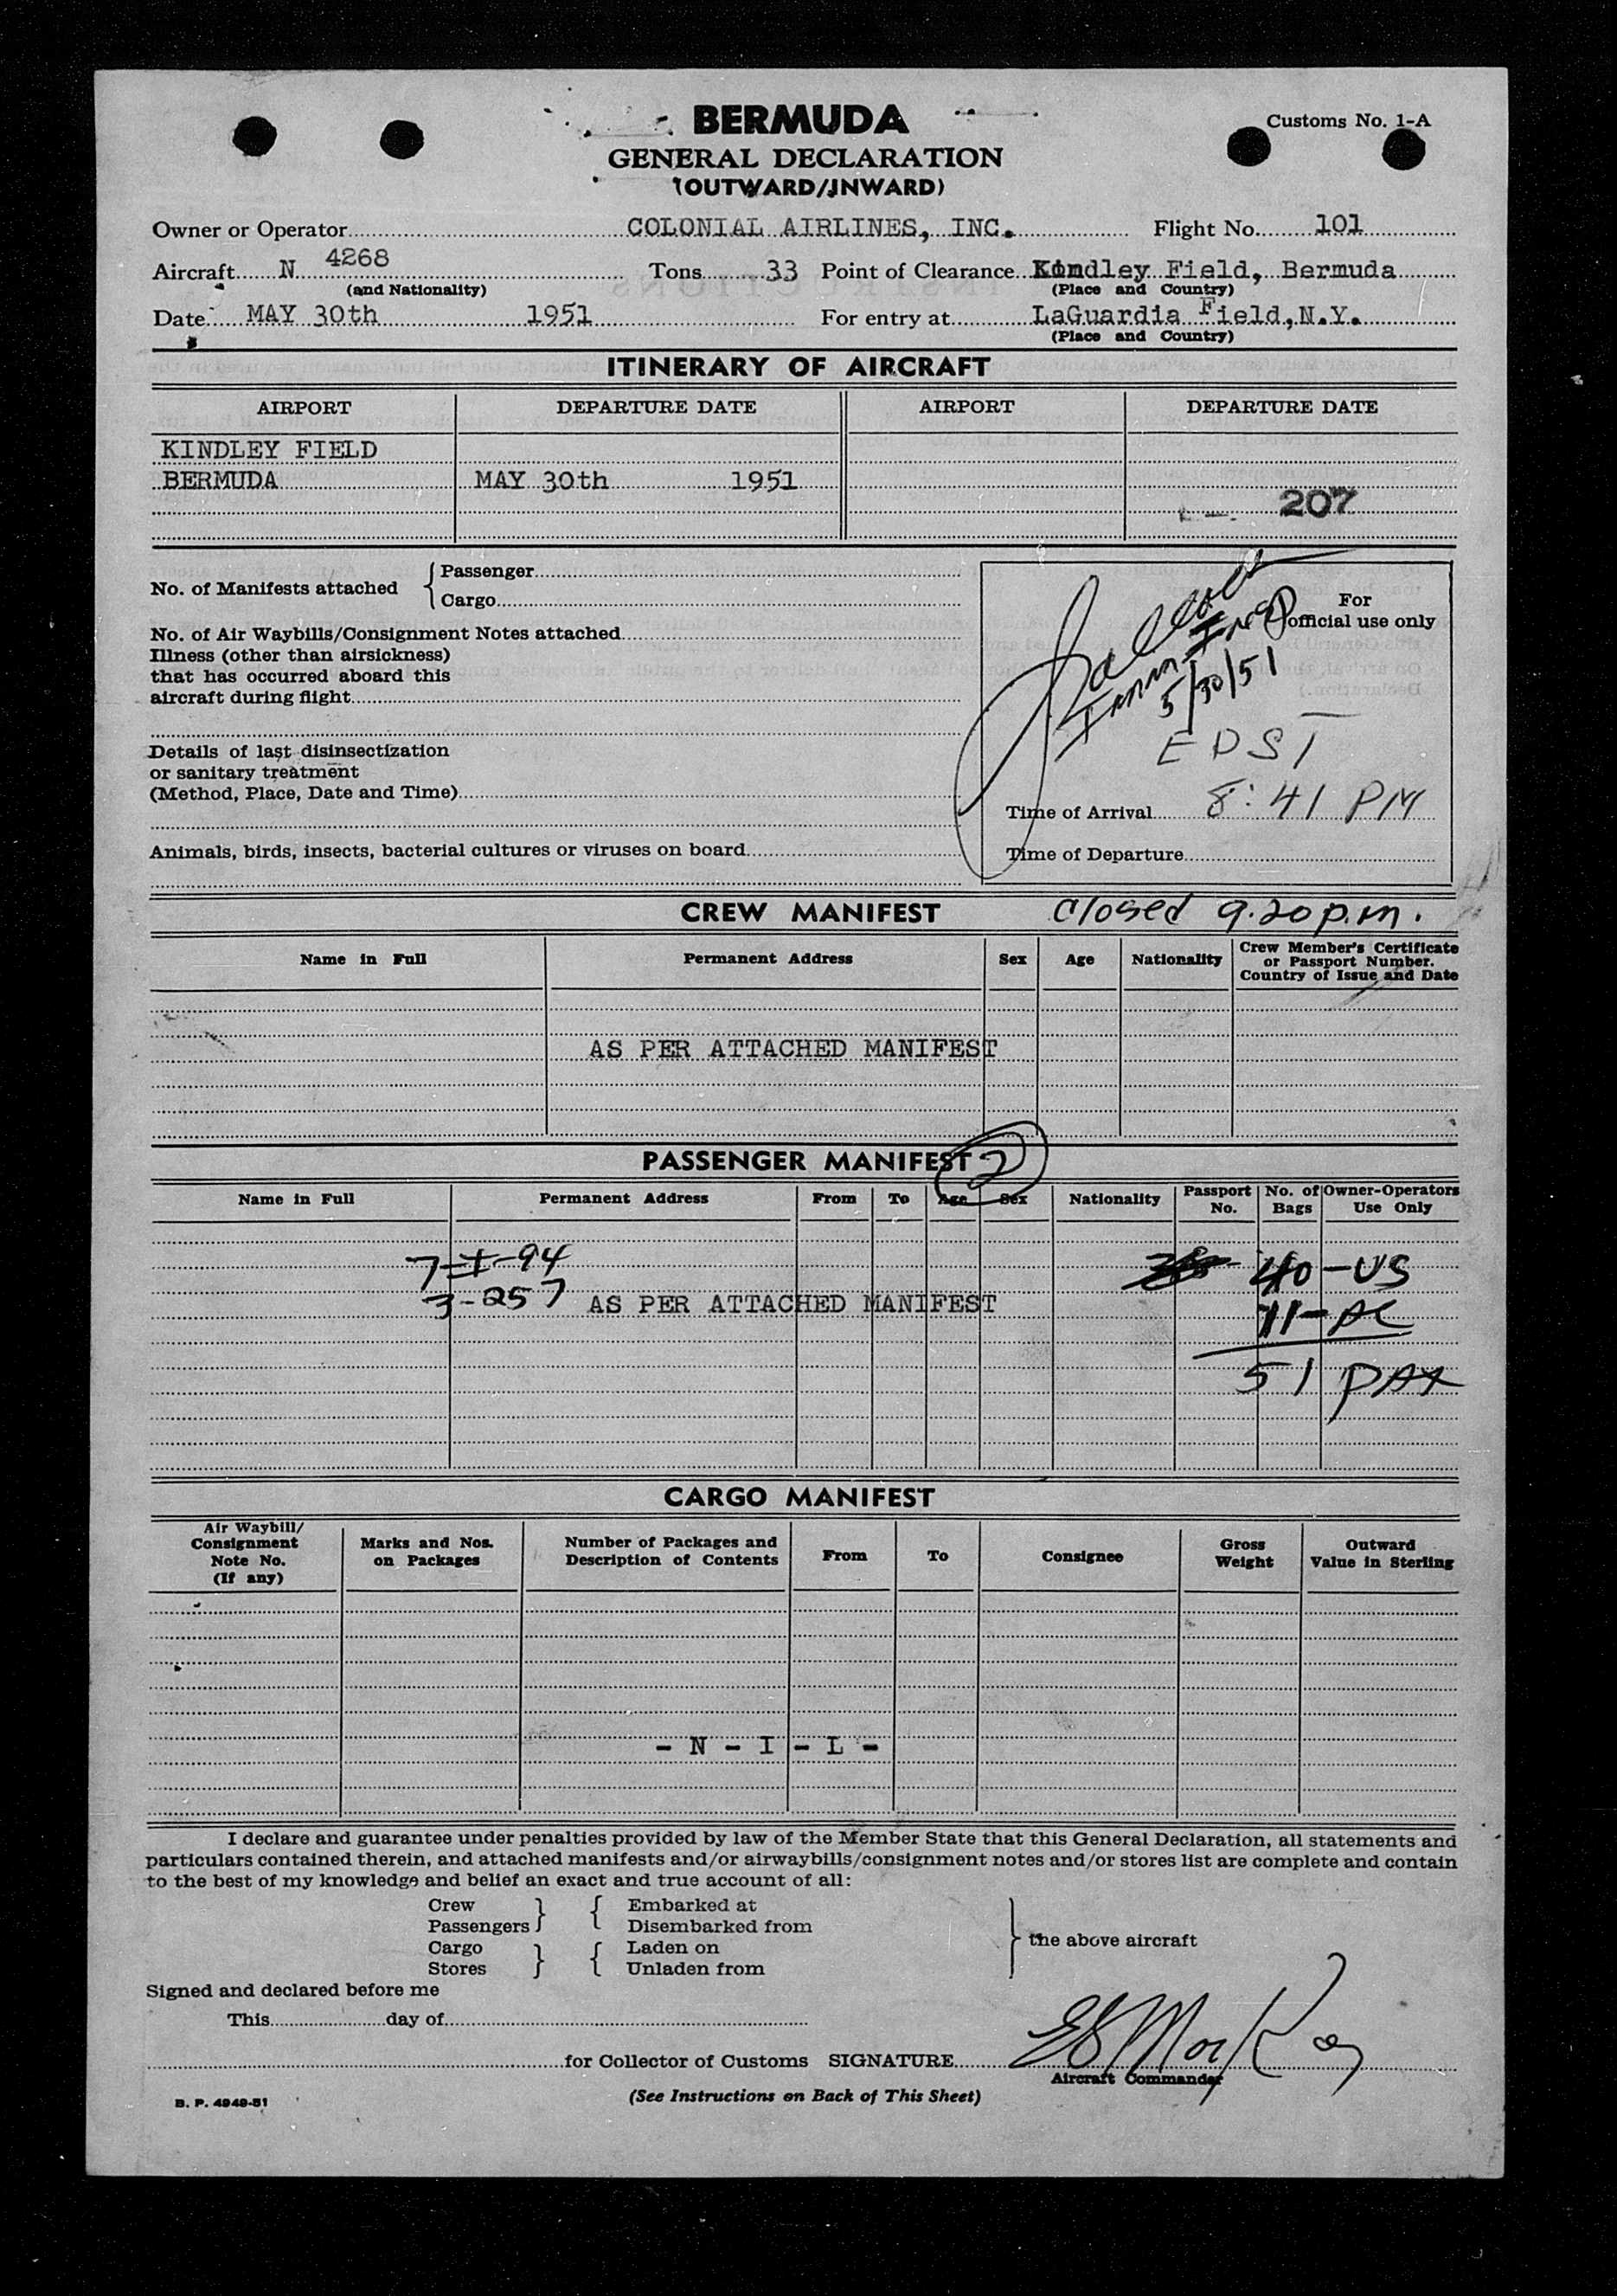 BERMUDA
Customs No. 1-A
GENERAL DECLARATION
(OUTWARD/INWARD)
Owner or Operator COLONIAL AIRLINES, INC. Flight No. 101
Aircraft N 4268 Tons 33 Point of Clearance Kindley Field, Bermuda
(and Nationality) (Place and Country)
Date MAY 30th 1951 For entry at LaGuardia Field, N.Y.
(Place and Country)
ITINERARY OF AIRCRAFT
AIRPORT DEPARTURE DATE AIRPORT DEPARTURE DATE
KINDLEY FIELD
BERMUDA MAY 30th 1951
207
No. of Manifests attached { Passenger
Cargo
For
official use only
No. of Air Waybills/Consignment Notes attached
Illness (other than airsickness)
that has occurred aboard this
aircraft during flight
5/30/51
EDST
Details of last disinsectization
or sanitary treatment
(Method, Place, Date and Time)
Time of Arrival 8:41 PM
Animals, birds, insects, bacterial cultures or viruses on board
Time of Departure
CREW MANIFEST closed 9.20 p.m.
Name in Full Permanent Address Sex Age Nationality Crew Member's Certificate
or Passport Number.
Country of Issue and Date
AS PER ATTACHED MANIFEST
PASSENGER MANIFEST 2
Name in Full Permanent Address From To Age Sex Nationality Passport No. No. of Bags Owner-Operators Use Only
7-I-94 40-US
3-257 AS PER ATTACHED MANIFEST 11-AL
51 PAX
CARGO MANIFEST
Air Waybill/
Consignment
Note No.
(If any)
Marks and Nos.
on Packages
Number of Packages and
Description of Contents
From To Consignee
Gross
Weight
Outward
Value in Sterling
- N - I - L -
I declare and guarantee under penalties provided by law of the Member State that this General Declaration, all statements and
particulars contained therein, and attached manifests and/or airwaybills/consignment notes and/or stores list are complete and contain
to the best of my knowledge and belief an exact and true account of all:
Crew } { Embarked at
Passengers Disembarked from
Cargo } { Laden on } the above aircraft
Stores Unladen from
Signed and declared before me
This day of
for Collector of Customs SIGNATURE
Aircraft Commander
B. P. 4949-51
(See Instructions on Back of This Sheet)